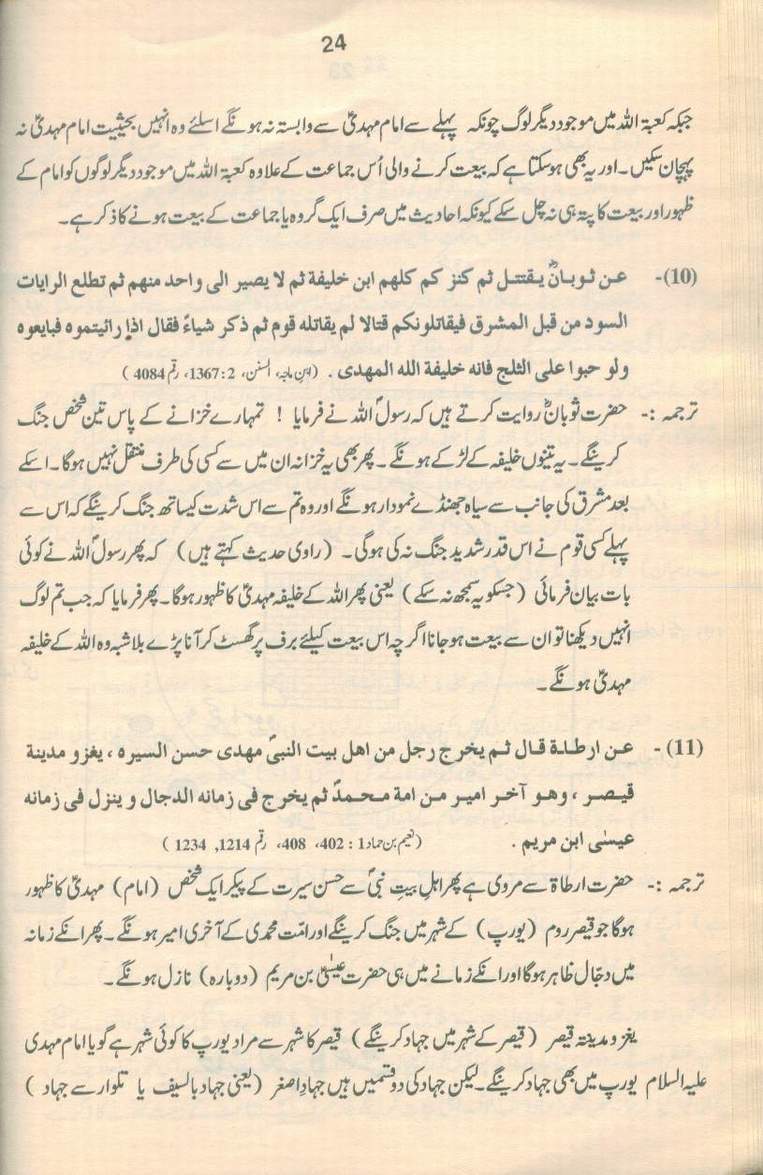 24
جبکہ کعبۃ اللہ میں موجود دیگر لوگ چونکہ پہلے سے امام مہدیؑ سے وابستہ نہ ہونگے اسلئے وہ انہیں بحیثیت امام مہدیؑ نہ
پہچان سکیں۔ اور یہ بھی ہو سکتا ہے کہ بیعت کرنے والی اُس جماعت کے علاوہ کعبۃ اللہ میں موجود دیگر لوگوں کو امام کے
ظہور اور بیعت کا پتہ ہی نہ چل سکے کیونکہ احادیث میں صرف ایک گروہ یا جماعت کے بیعت ہونے کا ذکر ہے۔
(10)- عن ثوبانؓ یقتتل ثم کنز کم کلھم ابن خلیفة ثم لا یصیر الی واحد منھم ثم تطلع الرایات
السود من قبل المشرق فیقاتلونکم قتالا لم یقاتله قوم ثم ذکر شیاءً فقال اذا رائیتموہ فبایعوہ
ولو حبوا علی الثلج فانه خلیفة الله المھدی . (ابن ماجہ، السنن، 2:1367، رقم 4084)
ترجمہ :- حضرت ثوبانؓ روایت کرتے ہیں کہ رسولؐ اللہ نے فرمایا ! تمہارے خزانے کے پاس تین شخص جنگ
کرینگے۔ یہ تینوں خلیفہ کے لڑکے ہونگے۔ پھر بھی یہ خزانہ ان میں سے کسی کی طرف منتقل نہیں ہوگا۔ اسکے
بعد مشرق کی جانب سے سیاہ جھنڈے نمودار ہونگے اور وہ تم سے اس شدت کیساتھ جنگ کرینگے کہ اس سے
پہلے کسی قوم نے اس قدر شدید جنگ نہ کی ہوگی۔ (راوی حدیث کہتے ہیں) کہ پھر رسولؐ اللہ نے کوئی
بات بیان فرمائی (جسکو یہ سمجھ نہ سکے) یعنی پھر اللہ کے خلیفہ مہدیؑ کا ظہور ہوگا۔ پھر فرمایا کہ جب تم لوگ
انہیں دیکھنا تو ان سے بیعت ہو جانا اگرچہ اس بیعت کیلئے برف پر گھسٹ کر آنا پڑے بلاشبہ وہ اللہ کے خلیفہ
مہدیؑ ہونگے۔
(11)- عن ارطاة قال ثم یخرج رجل من اھل بیت النبیؐ مھدی حسن السیرہ ، یغزو مدینة
قیصر ، وھو آخر امیر من امة محمدؐ ثم یخرج فی زمانه الدجال و ینزل فی زمانه
عیسٰی ابن مریم . (نعیم بن حماد 1 : 402، 408، رقم 1214, 1234)
ترجمہ :- حضرت ارطاۃ سے مروی ہے پھر اہلِ بیتِ نبیؐ سے حسن سیرت کے پیکر ایک شخص (امام) مہدیؑ کا ظہور
ہوگا جو قیصرِ روم (یورپ) کے شہر میں جنگ کرینگے اور امّت محمدی کے آخری امیر ہونگے۔ پھر انکے زمانہ
میں دجّال ظاہر ہوگا اور انکے زمانے میں ہی حضرت عیسٰیؑ بن مریم (دوبارہ) نازل ہونگے۔
یغزو مدینۃ قیصر (قیصر کے شہر میں جہاد کرینگے) قیصر کا شہر سے مراد یورپ کا کوئی شہر ہے گویا امام مہدی
علیہ السلام یورپ میں بھی جہاد کرینگے۔ لیکن جہاد کی دو قسمیں ہیں جہادِ اصغر (یعنی جہاد بالسیف یا تلوار سے جہاد )